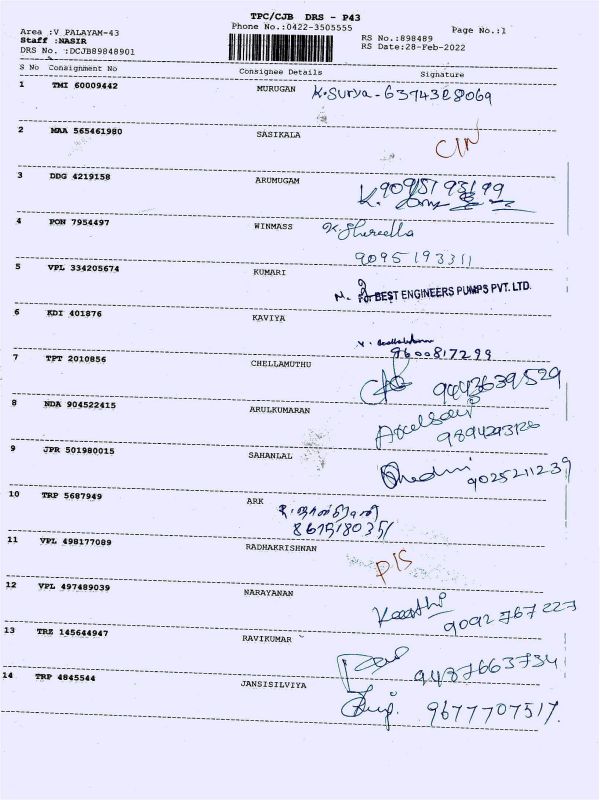 TPC/CJB DRS - P43
Area :V_PALAYAM-43 Phone No.:0422-3505555 Page No.:1
Staff :NASIR RS No.:898489
DRS No. :DCJB89848901 RS Date:28-Feb-2022
S No Consignment No Consignee Details Signature
1 TMI 60009442 MURUGAN K.Surya - 6374328069
2 MAA 565461980 SASIKALA
C/N
3 DDG 4219158 ARUMUGAM 9095193199
K.
4 PON 7954497 WINMASS
9095193311
5 VPL 334205674 KUMARI
For BEST ENGINEERS PUMPS PVT. LTD.
6 KDI 401876 KAVIYA
9600817299
7 TPT 2010856 CHELLAMUTHU
9443639529
8 NDA 904522415 ARULKUMARAN
9894293126
9 JPR 501980015 SAHANLAL
9025211239
10 TRP 5687949 ARK
8675180351
11 VPL 498177089 RADHAKRISHNAN
D/S
12 VPL 497489039 NARAYANAN
Keerthi 9092767227
13 TRZ 145644947 RAVIKUMAR
9437663734
14 TRP 4845544 JANSISILVIYA
9677707517.